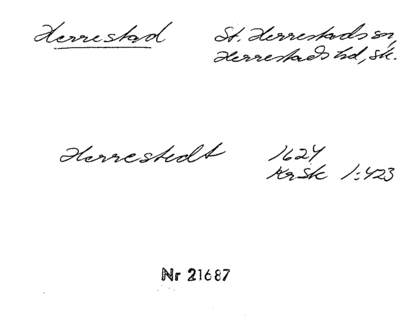 Herrestad St. Herrestads sn,
Herrestads hd, Sk.
Herrestedt 1624
KrSk 1:423
Nr 21687